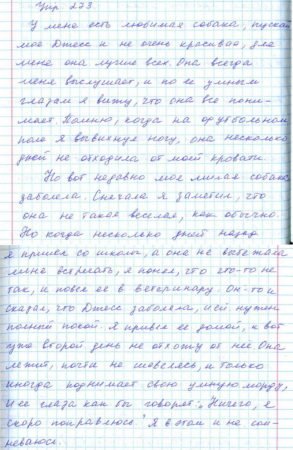 Упр. 273.
У меня есть любимая собака, пускай
моя Джесс и не очень красивая, для
меня она лучше всех. Она всегда
меня выслушает, и по её умным
глазам я вижу, что она все пони-
мает. Помню, когда на футбольном
поле я вывихнул ногу, она несколько
дней не отходила от моей кровати.
Но вот недавно моя милая собака
заболела. Сначала я заметил, что
она не такая веселая, как обычно.
Но когда несколько дней назад
я пришел со школы, а она не выбежала
меня встречать, я понял, что что-то не
так, и повел ее к ветеринару. Он-то и
сказал, что Джесс заболела, и ей нужен
полный покой. Я привел ее домой, и вот
уже второй день не отхожу от нее. Она
лежит, почти не шевелясь, и только
иногда поднимает свою умную морду,
и ее глаза как бы говорят: „Ничего, я
скоро поправлюсь." Я в этом и не сом-
неваюсь.